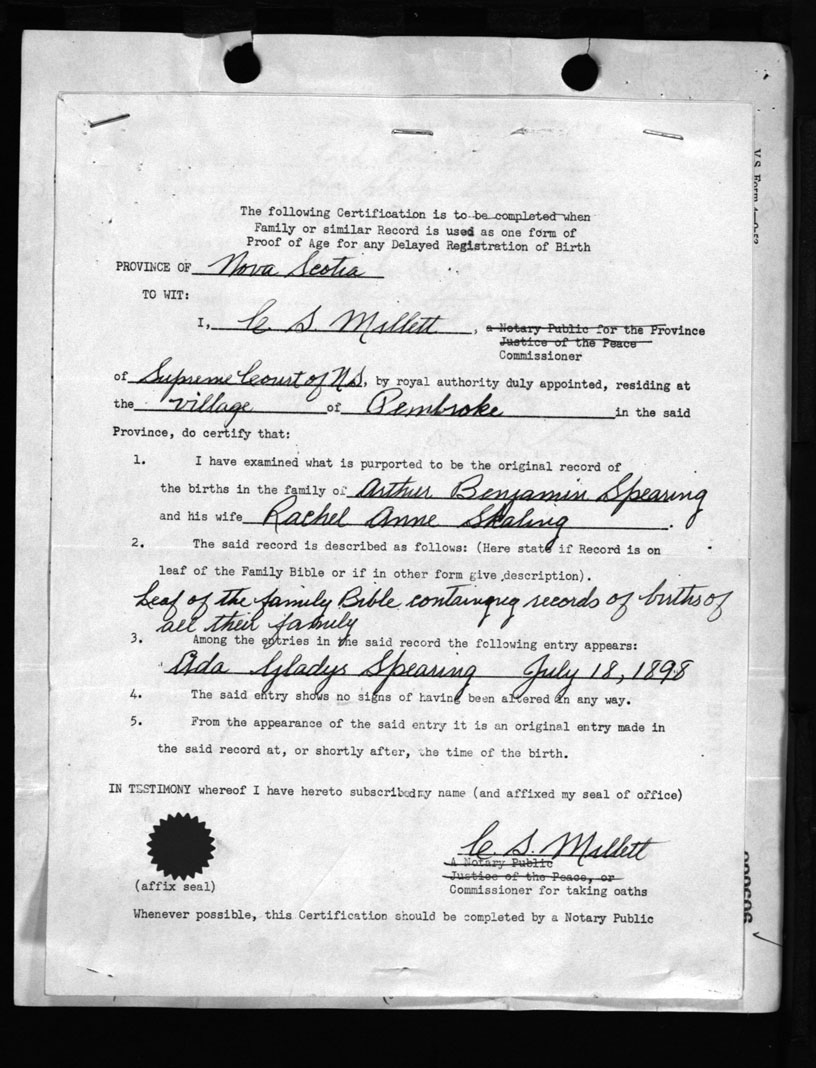 The following Certification is to be completed when
Family or similar Record is used as one form of
Proof of Age for any Delayed Registration of Birth
PROVINCE OF Nova Scotia
TO WIT:
I, C S Millett, a Notary Public for the Province
Justice of the Peace
Commissioner
of Supreme Court of N.S., by royal authority duly appointed, residing at
the village of Pembroke in the said
Province, do certify that:
1. I have examined what is purported to be the original record of
the births in the family of Arthur Benjamin Spearing
and his wife Rachel Anne Skaling.
2. The said record is described as follows: (Here state if Record is on
leaf of the Family Bible or if in other form give description).
Leaf of the family Bible containing records of births of
all their family
3. Among the entries in the said record the following entry appears:
Ada Gladys Spearing July 18, 1898
4. The said entry shows no signs of having been altered in any way.
5. From the appearance of the said entry it is an original entry made in
the said record at, or shortly after, the time of the birth.
IN TESTIMONY whereof I have hereto subscribed my name (and affixed my seal of office)
C. S. Millett
A Notary Public
Justice of the Peace, or
(affix seal) Commissioner for taking oaths
Whenever possible, this Certification should be completed by a Notary Public
V.S. Form